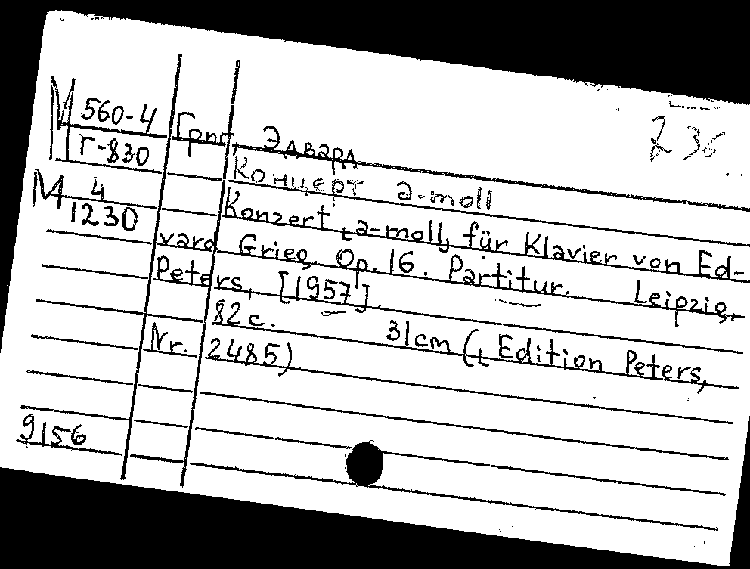 М 560-4
Г-830
Григ, Эдвард
236
Концерт a-moll
М 4
1230
Konzert [a-moll] für Klavier von Ed-
vard Grieg. Op. 16. Partitur. Leipzig,
Peters, [1957].
82 с. 31cm ([Edition Peters,
Nr. 2485)
9156